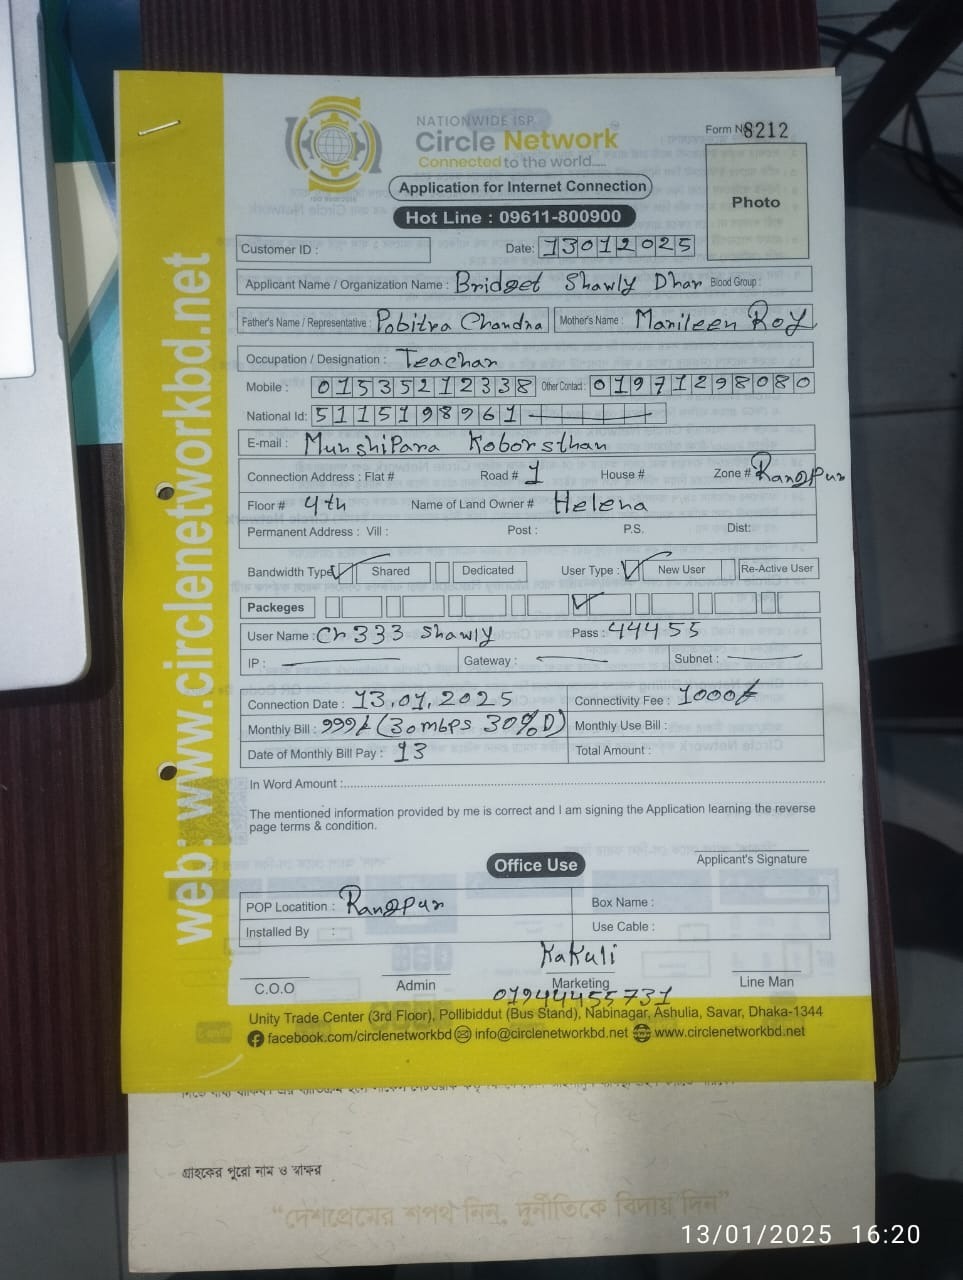 NATIONWIDE ISP
Circle Network
Connected to the world.....
Form N 8212
Photo
Application for Internet Connection
Hot Line : 09611-800900
web: www.circlenetworkbd.net
Customer ID :
Date: 13012025
Applicant Name / Organization Name : Bridget Shawly Dhar Blood Group :
Father's Name / Representative : Pobitra Chandra Mother's Name : Marileen Roy
Occupation / Designation : Teachar
Mobile : 01535212338 Other Contact : 01971298080
National Id: 5115198961
E-mail : MunshiPara Koborsthan
Connection Address : Flat # Road # 1 House # Zone # Rangpur
Floor # 4th Name of Land Owner # Helena
Permanent Address : Vill : Post : P.S. Dist:
Bandwidth Type Shared Dedicated User Type : New User Re-Active User
Packeges
User Name : Cn333 Shawly Pass : 44455
IP : Gateway : Subnet :
Connection Date : 13.01.2025 Connectivity Fee : 1000/
Monthly Bill : 999/ (30mbps 30% D) Monthly Use Bill :
Date of Monthly Bill Pay : 13 Total Amount :
In Word Amount :
The mentioned information provided by me is correct and I am signing the Application learning the reverse
page terms & condition.
Applicant's Signature
Office Use
POP Locatition : Rangpur Box Name :
Installed By : Use Cable :
Kakuli
C.O.O Admin Marketing Line Man
01944455731
Unity Trade Center (3rd Floor), Pollibiddut (Bus Stand), Nabinagar, Ashulia, Savar, Dhaka-1344
facebook.com/circlenetworkbd info@circlenetworkbd.net www.circlenetworkbd.net
গ্রাহকের পুরো নাম ও স্বাক্ষর
“দেশপ্রেমের শপথ নিন, দুর্নীতিকে বিদায় দিন”
13/01/2025 16:20